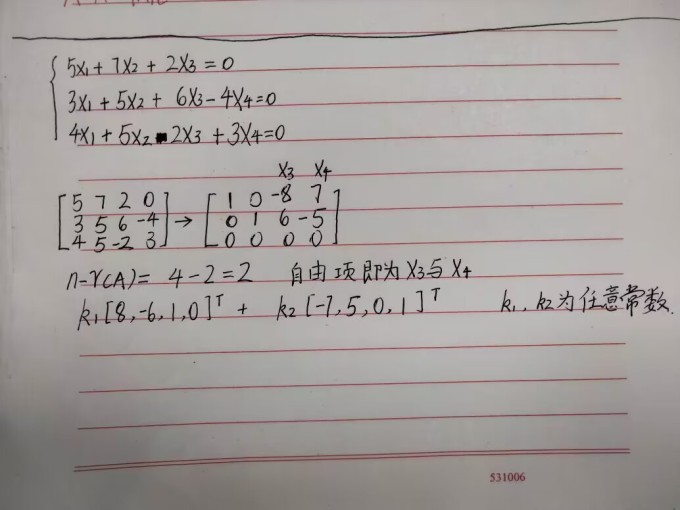 5x₁+7x₂+2x₃=0
3x₁+5x₂+6x₃-4x₄=0
4x₁+5x₂-2x₃+3x₄=0
x₃ x₄
[5 7 2 0] → [1 0 -8 7]
[3 5 6 -4] [0 1 6 -5]
[4 5 -2 3] [0 0 0 0]
n-r(A)= 4-2=2 自由项即为x₃与x₄
k₁[8,-6,1,0]ᵀ + k₂[-7,5,0,1]ᵀ k₁,k₂为任意常数.
531006